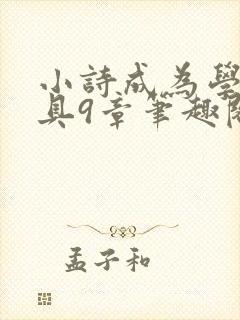 小詩成為學
具9章筆趣閱
孟子和